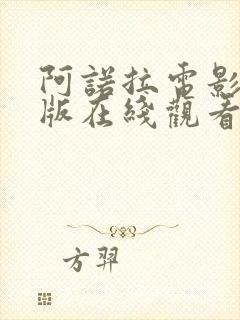 阿諾拉電影
版在綫觀看
方羿